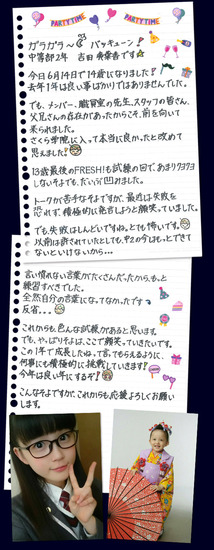 PARTY TIME
PARTY TIME
ガラガラ〜 バッキューン!
中等部2年 吉田 爽葉香です☆
今日6月14日で14歳になりました!
去年1年は良い事ばかりではありませんでした。
でも、メンバー、職員室の先生、スタッフの皆さん、
父兄さんの存在があったからこそ、前を向いて
来られました。
さくら学院に入って本当に良かったと改めて
思えました!
13歳最後のFRESH!も試練の回で、あまりクヨクヨ
しないそよでも、だいぶ凹みました。
トークが苦手なそよですが、最近は失敗を
恐れず、積極的に発言しようと頑張っていました。
でも、失敗はしんどいですね。とても怖いです。
以前は許されていたとしても、中2の今はもっとできて
ないといけないから...
言い慣れない言葉がたくさんだったから、もっと
練習すべきでした。
全然自分の言葉になってなかったです
反省...
これからも、色んな試練があると思います。
でも、やっぱりそよは、ここで頑張っていきたいです。
この1年で成長したねって言ってもらえるように、
何事にも積極的に挑戦していきます!
今年は良い年にするぞ!
こんなそよですが、これからも、応援よろしくお願い
します。